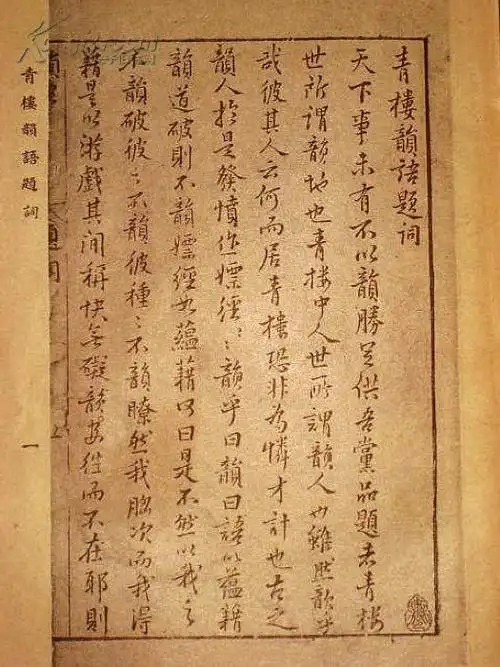 青樓韻語題詞
天下事未有不以韻勝足供吾黨品題者青樓
世所謂韻地也青樓中人世所謂韻人也雖然韻乎
哉彼其人云何而居青樓恐非為憐才計也古之
韻人於是發憤作嫖經〻韻乎曰韻曰語以蘊藉
韻道破則不韻嫖經如蘊藉何曰是不然以我之
不韻破彼〻不韻彼種〻不韻瞭然我胸次而我得
藉是以游戲其間稱快無礙韻安往而不在耶則
青樓韻語題詞
一